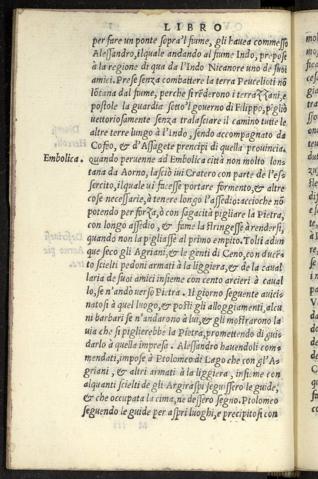 LIBRO
per fare un ponte sopra'l fiume, gli hauea commesso
Alessandro, ilquale andando al fiume Indo, prepose
à la regione di qua da l'Indo Nicanore uno de suoi
amici. Prese senza combattere la terra Peucelioti nō
lōtana dal fiume, perche si rēderono i terrazzani, e
postole la guardia sotto'l gouerno di Filippo, pigliò
uettoriosamente senza tralasciare il camino tutte le
altre terre lungo à l'Indo, sendo accompagnato da
Cofio, & d'Assagete prencipi di quella prouincia.
Embolica.
quando peruenne ad Embolica città non molto lon-
tana da Aorno, lasciò iui Cratero con parte de l'es-
sercito, ilquale ui facesse portare formento, & altre
cose necessarie, à tenere longo l'assedio: accioche nō
potendo per forza, ò con sagacità pigliare la Pietra,
con longo assedio, & fame la stringesse à rendersi,
quando non la pigliasse al primo empito. Tolti adun
que seco gli Agriani, & le genti di Ceno, con ducen
to scielti pedoni armati à la liggiera, & de la caual
laria de suoi amici insieme con cento arcieri à caual
lo, se n'andò uerso Pietra. Il giorno seguente auici-
natosi à quel luogo, & posti gli alloggiamenti, alcu
ni barbari se n'andarono à lui, & gli mostrarono la
uia che si piglierebbe la Pietra, promettendo di gui-
darlo à quella impresa. Alessandro hauendoli com-
mendati, impose à Ptolomeo di Lago che con gl'A-
griani, & altri armati à la liggiera, insieme con
alquanti scielti de gli Argiraspi seguissero le guide,
& che occupata la cima, ne dessero segno. Ptolomeo
seguendo le guide per aspri luoghi, e precipitosi con